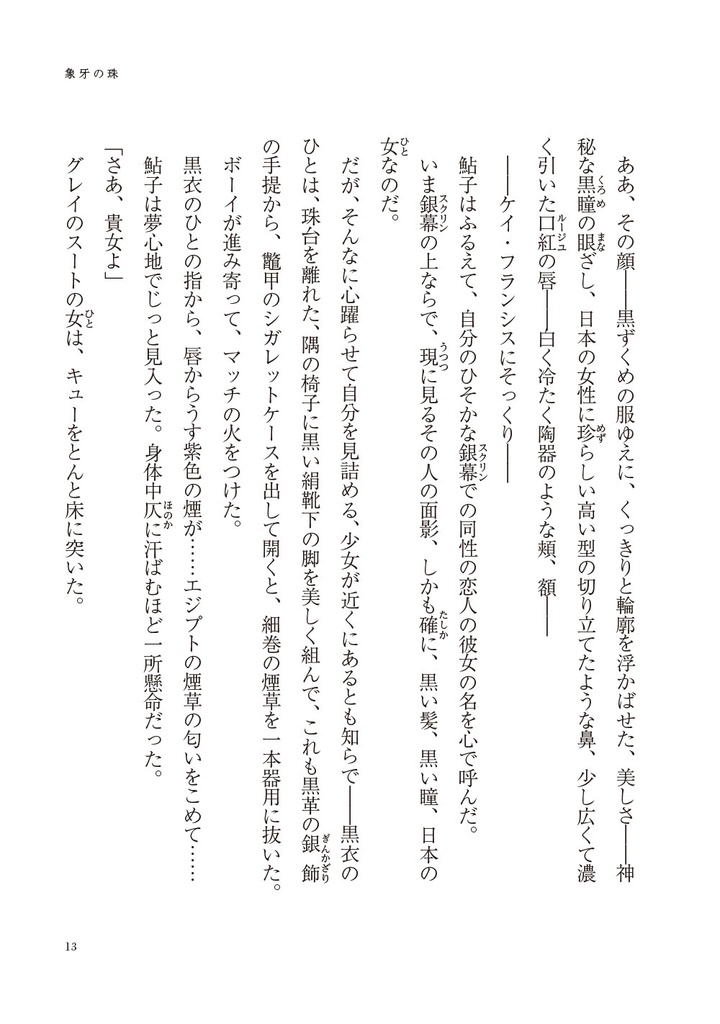 象牙の珠
ああ、その顔――黒ずくめの服ゆえに、くっきりと輪廓を浮かばせた、美しさ――神
秘な黒瞳の眼ざし、日本の女性に珍らしい高い型の切り立てたような鼻、少し広くて濃
く引いた口紅の唇――白く冷たく陶器のような頰、額――
――ケイ・フランシスにそっくり――
鮎子はふるえて、自分のひそかな銀幕での同性の恋人の彼女の名を心で呼んだ。
いま銀幕の上ならで、現に見るその人の面影、しかも確に、黒い髪、黒い瞳、日本の
女なのだ。
だが、そんなに心躍らせて自分を見詰める、少女が近くにあるとも知らで――黒衣の
ひとは、珠台を離れた、隅の椅子に黒い絹靴下の脚を美しく組んで、これも黒革の銀飾
の手提から、鼈甲のシガレットケースを出して開くと、細巻の煙草を一本器用に抜いた。
ボーイが進み寄って、マッチの火をつけた。
黒衣のひとの指から、唇からうす紫色の煙が……エジプトの煙草の匂いをこめて……
鮎子は夢心地でじっと見入った。身体中仄に汗ばむほど一所懸命だった。
「さあ、貴女よ」
グレイのスートの女は、キューをとんと床に突いた。
13